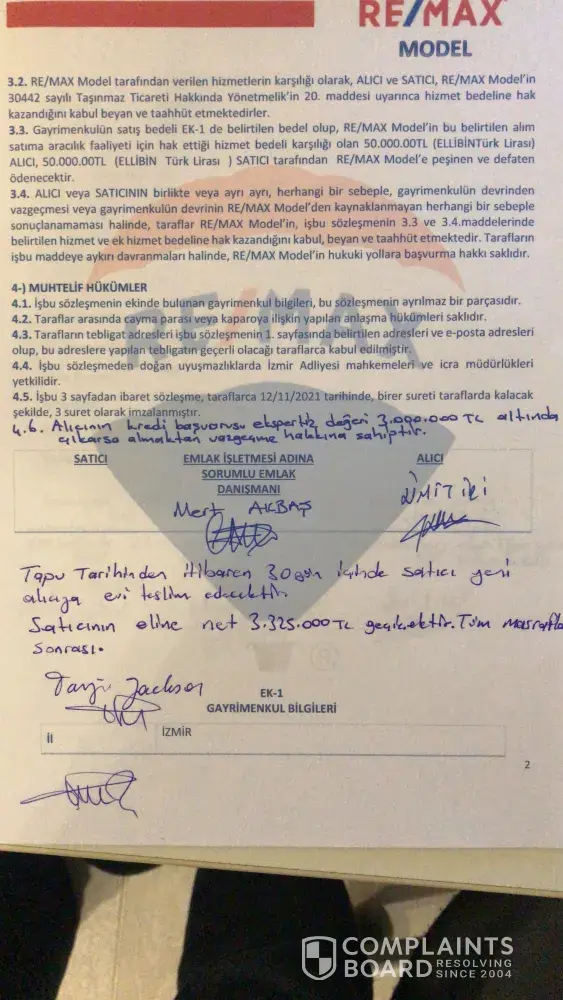 RE/MAX
MODEL
3.2. RE/MAX Model tarafından verilen hizmetlerin karşılığı olarak, ALICI ve SATICI, RE/MAX Model'in
30442 sayılı Taşınmaz Ticareti Hakkında Yönetmelik'in 20. maddesi uyarınca hizmet bedeline hak
kazandığını kabul beyan ve taahhüt etmektedirler.
3.3. Gayrimenkulün satış bedeli EK-1 de belirtilen bedel olup, RE/MAX Model'in bu belirtilen alım
satıma aracılık faaliyeti için hak ettiği hizmet bedeli karşılığı olan 50.000.00TL (ELLİBİNTürk Lirası)
ALICI, 50.000.00TL (ELLİBİN Türk Lirası ) SATICI tarafından RE/MAX Model'e peşinen ve defaten
ödenecektir.
3.4. ALICI veya SATICININ birlikte veya ayrı ayrı, herhangi bir sebeple, gayrimenkulün devrinden
vazgeçmesi veya gayrimenkulün devrinin RE/MAX Model'den kaynaklanmayan herhangi bir sebeple
sonuçlanamaması halinde, taraflar RE/MAX Model'in, işbu sözleşmenin 3.3 ve 3.4.maddelerinde
belirtilen hizmet ve ek hizmet bedeline hak kazandığını kabul, beyan ve taahhüt etmektedir. Tarafların
işbu maddeye aykırı davranmaları halinde, RE/MAX Model'in hukuki yollara başvurma hakkı saklıdır.
4-) MUHTELİF HÜKÜMLER
4.1. İşbu sözleşmenin ekinde bulunan gayrimenkul bilgileri, bu sözleşmenin ayrılmaz bir parçasıdır.
4.2. Taraflar arasında cayma parası veya kaparoya ilişkin yapılan anlaşma hükümleri saklıdır.
4.3. Tarafların tebligat adresleri işbu sözleşmenin 1. sayfasında belirtilen adresleri ve e-posta adresleri
olup, bu adreslere yapılan tebligatın geçerli olacağı taraflarca kabul edilmiştir.
4.4. İşbu sözleşmeden doğan uyuşmazlıklarda İzmir Adliyesi mahkemeleri ve icra müdürlükleri
yetkilidir.
4.5. İşbu 3 sayfadan ibaret sözleşme, taraflarca 12/11/2021 tarihinde, birer sureti taraflarda kalacak
şekilde, 3 suret olarak imzalanmıştır.
4.6. Alıcının kredi başvurusu ekspertiz değeri 3.090.000 TL altında
çıkarsa almaktan vazgeçme hakkına sahiptir.
SATICI EMLAK İŞLETMESİ ADINA ALICI
SORUMLU EMLAK
DANIŞMANI
Mert AKBAŞ
ÜMİT
Tapu Tarihinden itibaren 30 gün içinde satıcı yeni
alıcıya evi teslim edecektir.
Satıcının eline net 3.325.000 TL geçecektir. Tüm
sonrası.
Jackson
EK-1
GAYRİMENKUL BİLGİLERİ
İl İZMİR
2
RE/MAX
COMPLAINTS
BOARD RESOLVING
SINCE 2004